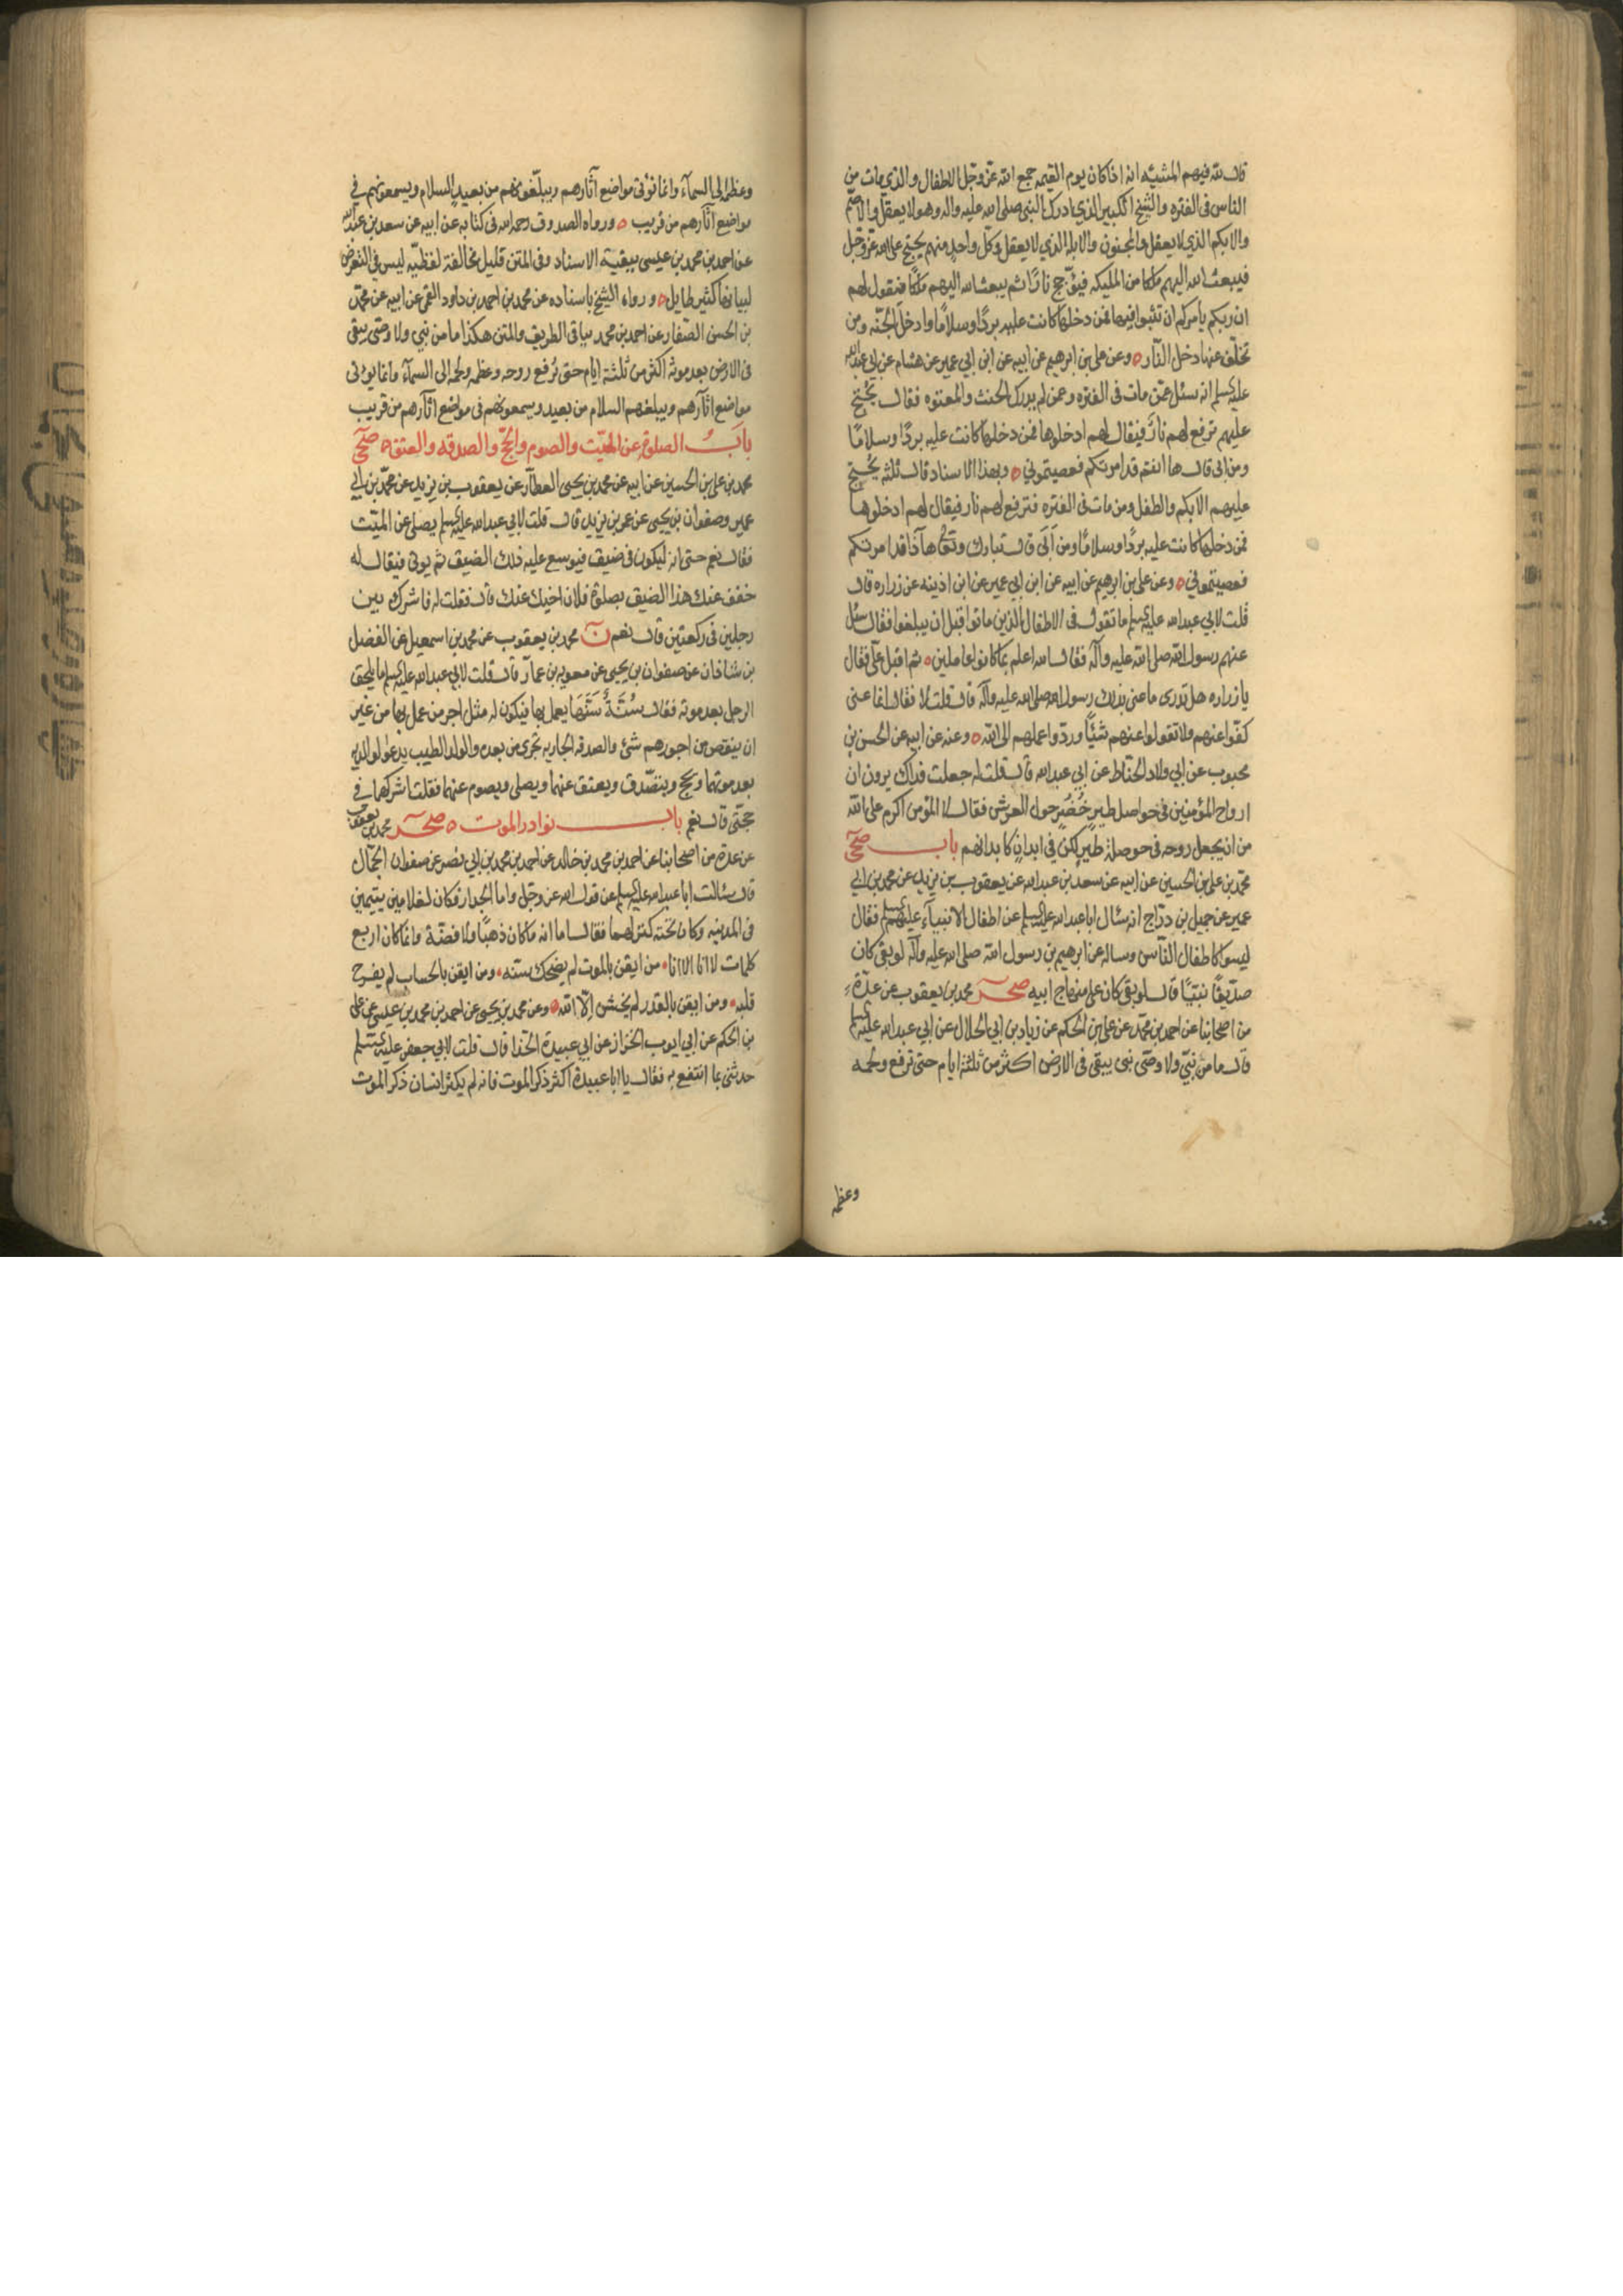 قال لله فيهم المشيّه انه اذا كان يوم القيمه جمع الله عزّ وجلّ الاطفال والذي مات من
الناس فى الفتره والشيخ الكبير الذي ادرك النبى صلى الله عليه واله وهو لا يعقل والاصم
والابكم الذي لا يعقل والمجنون والابله الذي لا يعقل وكلّ واحد منهم يحتج على الله عزّ وجل
فيبعث الله اليهم ملكا من المليكه فيؤجج نارًا ثم يبعث الله اليهم ملكًا فيقول لهم
ان ربكم يأمركم ان تثبوا فيها فمن دخلها كانت عليه بردًا وسلامًا وادخل الجنّه ومن
تخلّف عنها دخل النّار ه وعن على بن ابرهيم عن ابيه عن ابن ابي عمير عن هشام عن ابي عبد الله
عليه السلم انه سئل عمّن مات فى الفتره وعمن لم يدرك الحنث والمعتوه فقال يحتج
عليهم ترفع لهم نار فيقال لهم ادخلوها فمن دخلها كانت عليه بردًا وسلامًا
ومن ابى قال ها انتم قد امرتكم فعصيتموني ه وبهذا الاسناد قال ثلثه يحتج
عليهم الابكم والطفل ومن مات فى الفتره فترفع لهم نار فيقال لهم ادخلوها
فمن دخلها كانت عليه بردًا وسلامًا ومن ابى قال تبارك وتعالى هذا قد امرتكم
فعصيتموني ه وعن على بن ابرهيم عن ابيه عن ابن ابي عمير عن ابن اذينه عن زراره قال
قلت لابي عبد الله عليه السلم ما تقول فى الاطفال الذين ماتوا قبل ان يبلغوا فقال سئل
عنهم رسول الله صلى الله عليه وآله فقال الله اعلم بما كانوا عاملين ه ثم اقبل علىّ فقال
يا زراره هل تدرى ما عنى بذلك رسول الله صلى الله عليه وآله قال قلت لا فقال انما عنى
كفّوا عنهم ولا تقولوا عنهم شيئًا وردّوا علمهم الى الله ه وعنه عن ابيه عن الحسن بن
محبوب عن ابي ولاد الحنّاط عن ابي عبد الله قال قلت له جعلت فداك يرون ان
ارواح المؤمنين فى حواصل طير خُضُر حول العرش فقال لا المؤمن اكرم على الله
من ان يجعل روحه فى حوصلة طير لكن في ابدان كابدانهم باب صحى
محمّد بن على بن الحسين عن ابيه عن سعد بن عبد الله عن يعقوب بن يزيد عن محمد بن ابي
عمير عن جميل بن درّاج انه سئال ابا عبد الله عليه السلم عن اطفال الانبيآء عليهم السلم فقال
ليسوا كاطفال النّاس وساله عن ابرهيم بن رسول الله صلى الله عليه وآله لو بقى كان
صدّيقًا نبيًّا قال لو بقى كان على منهاج ابيه صحر محمد بن يعقوب عن عدّة
من اصحابنا عن احمد بن محمّد عن على بن الحكم عن زياد بن ابي الحلال عن ابي عبد الله عليه السلم
قال ما من نبيّ ولا وصّى نبى يبقى فى الارض اكثر من ثلثة ايام حتى ترفع ولحمه
وعظمه
وعظمه الى السمآء وانما تؤتى مواضع آثارهم ويبلّغونهم من بعيد السلام ويسمعونهم في
مواضع آثارهم من قريب ه ورواه الصدوق رحمه الله فى كتابه عن ابيه عن سعد بن عبد الله
عن احمد بن محمد بن عيسى ببقية الاسناد وفى المتن قليل مخالفة لفظيّه ليس في التعرّض
لبيانها كثير طايل ه ورواه الشيخ باسناده عن محمد بن احمد بن داود القمى عن ابيه عن محمّد
بن الحسن الصّفار عن احمد بن محمد بباقى الطريق والمتن هكذا ما من نبي ولا وصّى يبقى
فى الارض بعد موته اكثر من ثلثة ايام حتى تُرفع روحه وعظمه ولحمه الى السمآء وانما يؤتى
مواضع اثآرهم ويبلغهم السلام من بعيد ويسمعونهم فى مواضع اثآرهم من قريب
باب الصلوة عن الميّت والصوم والحجّ والصدقه والعتق ه صحى
محمد بن على بن الحسين عن ابيه عن محمد بن يحيى العطّار عن يعقوب بن يزيد عن محمّد بن ابي
عمير وصفوان بن يحيى عن عمر بن يزيد قال قلت لابي عبد الله عليه السلم يصلى عن الميّت
فقال نعم حتى انه ليكون فى ضيق فيوسع عليه ذلك الضيق ثم يوتى فيقال له
خفف عنك هذا الضيق بصلوة فلان اخيك عنك قال فقلت له فاشرك بين
رجلين فى ركعتين قال نعم ن محمد بن يعقوب عن محمد بن اسمعيل عن الفضل
بن شاذان عن صفوان بن يحيى عن معويه بن عمّار قال قلت لابي عبد الله عليه السلم ما يلحق
الرجل بعد موته فقال سُنَّةٌ سَنَّهَا يعمل بها فيكون له مثل اجر من عمل بها من غير
ان ينقص من اجورهم شئ والصدقه الجاريه تجرى من بعده والولد الطيب يدعو لوالديه
بعد موتهما ويحج ويتصّدق ويعتق عنهما ويصلى ويصوم عنهما فقلت اشركهما في
حجتى قال نعم باب نوادر الموت ه صحر محمد بن يعقوب
عن عدّة من اصحابنا عن احمد بن محمد بن خالد عن احمد بن محمد بن ابي نصر عن صفوان الجمّال
قال سئالت ابا عبد الله عليه السلم عن قول الله عز وجلّ واما الجدار فكان لغلامين يتيمين
فى المدينه وكان تحته كنز لهما فقال اما انه ماكان ذهبًا ولا فضّة وانما كان اربع
كلمات لا اله الا انا • من ايقن بالموت لم يضحك سنّه • ومن ايقن بالحساب لم يفرح
قلبه • ومن ايقن بالقدر لم يخش إلّا الله ه وعن محمد بن يحيى عن احمد بن محمد بن عيسى عن على
بن الحكم عن ابي ايوب الخزاز عن ابي عبيدة الحذا قال قلت لابي جعفر عليه السلم
حدثنى بما انتفع به فقال يا ابا عبيدة اكثر ذكر الموت فانه لم يكثر انسان ذكر الموت